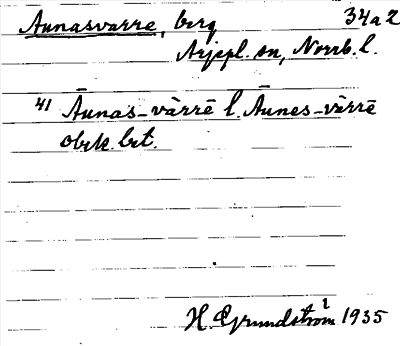 Aunasvarre, berg 34a2
Arjepl. sn, Norrb. l.
41 Āunas-vàrrē l. Āunes-vàrrē
obek. bet.
H. Grundström 1935